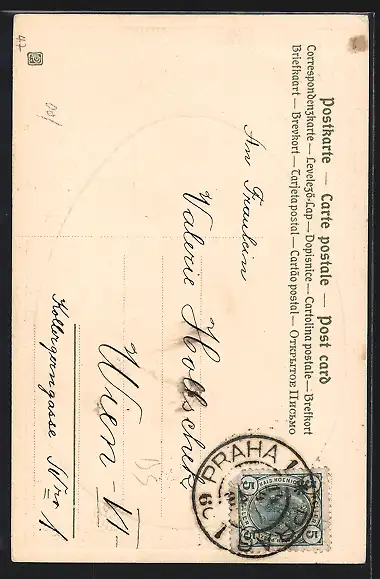 Postkarte — Carte postale — Post card
Correspondenzkarte — Levelező-Lap — Dopisnice — Cartolina postale — Brefkort
Briefkaart — Brevkort — Tarjeta postal — Cartão postal — Открытое Письмо
An Fräulein
Valerie Holtschek
Wien – VI
Kollergerngasse Nro 1.
PRAHA 1
5
5
47